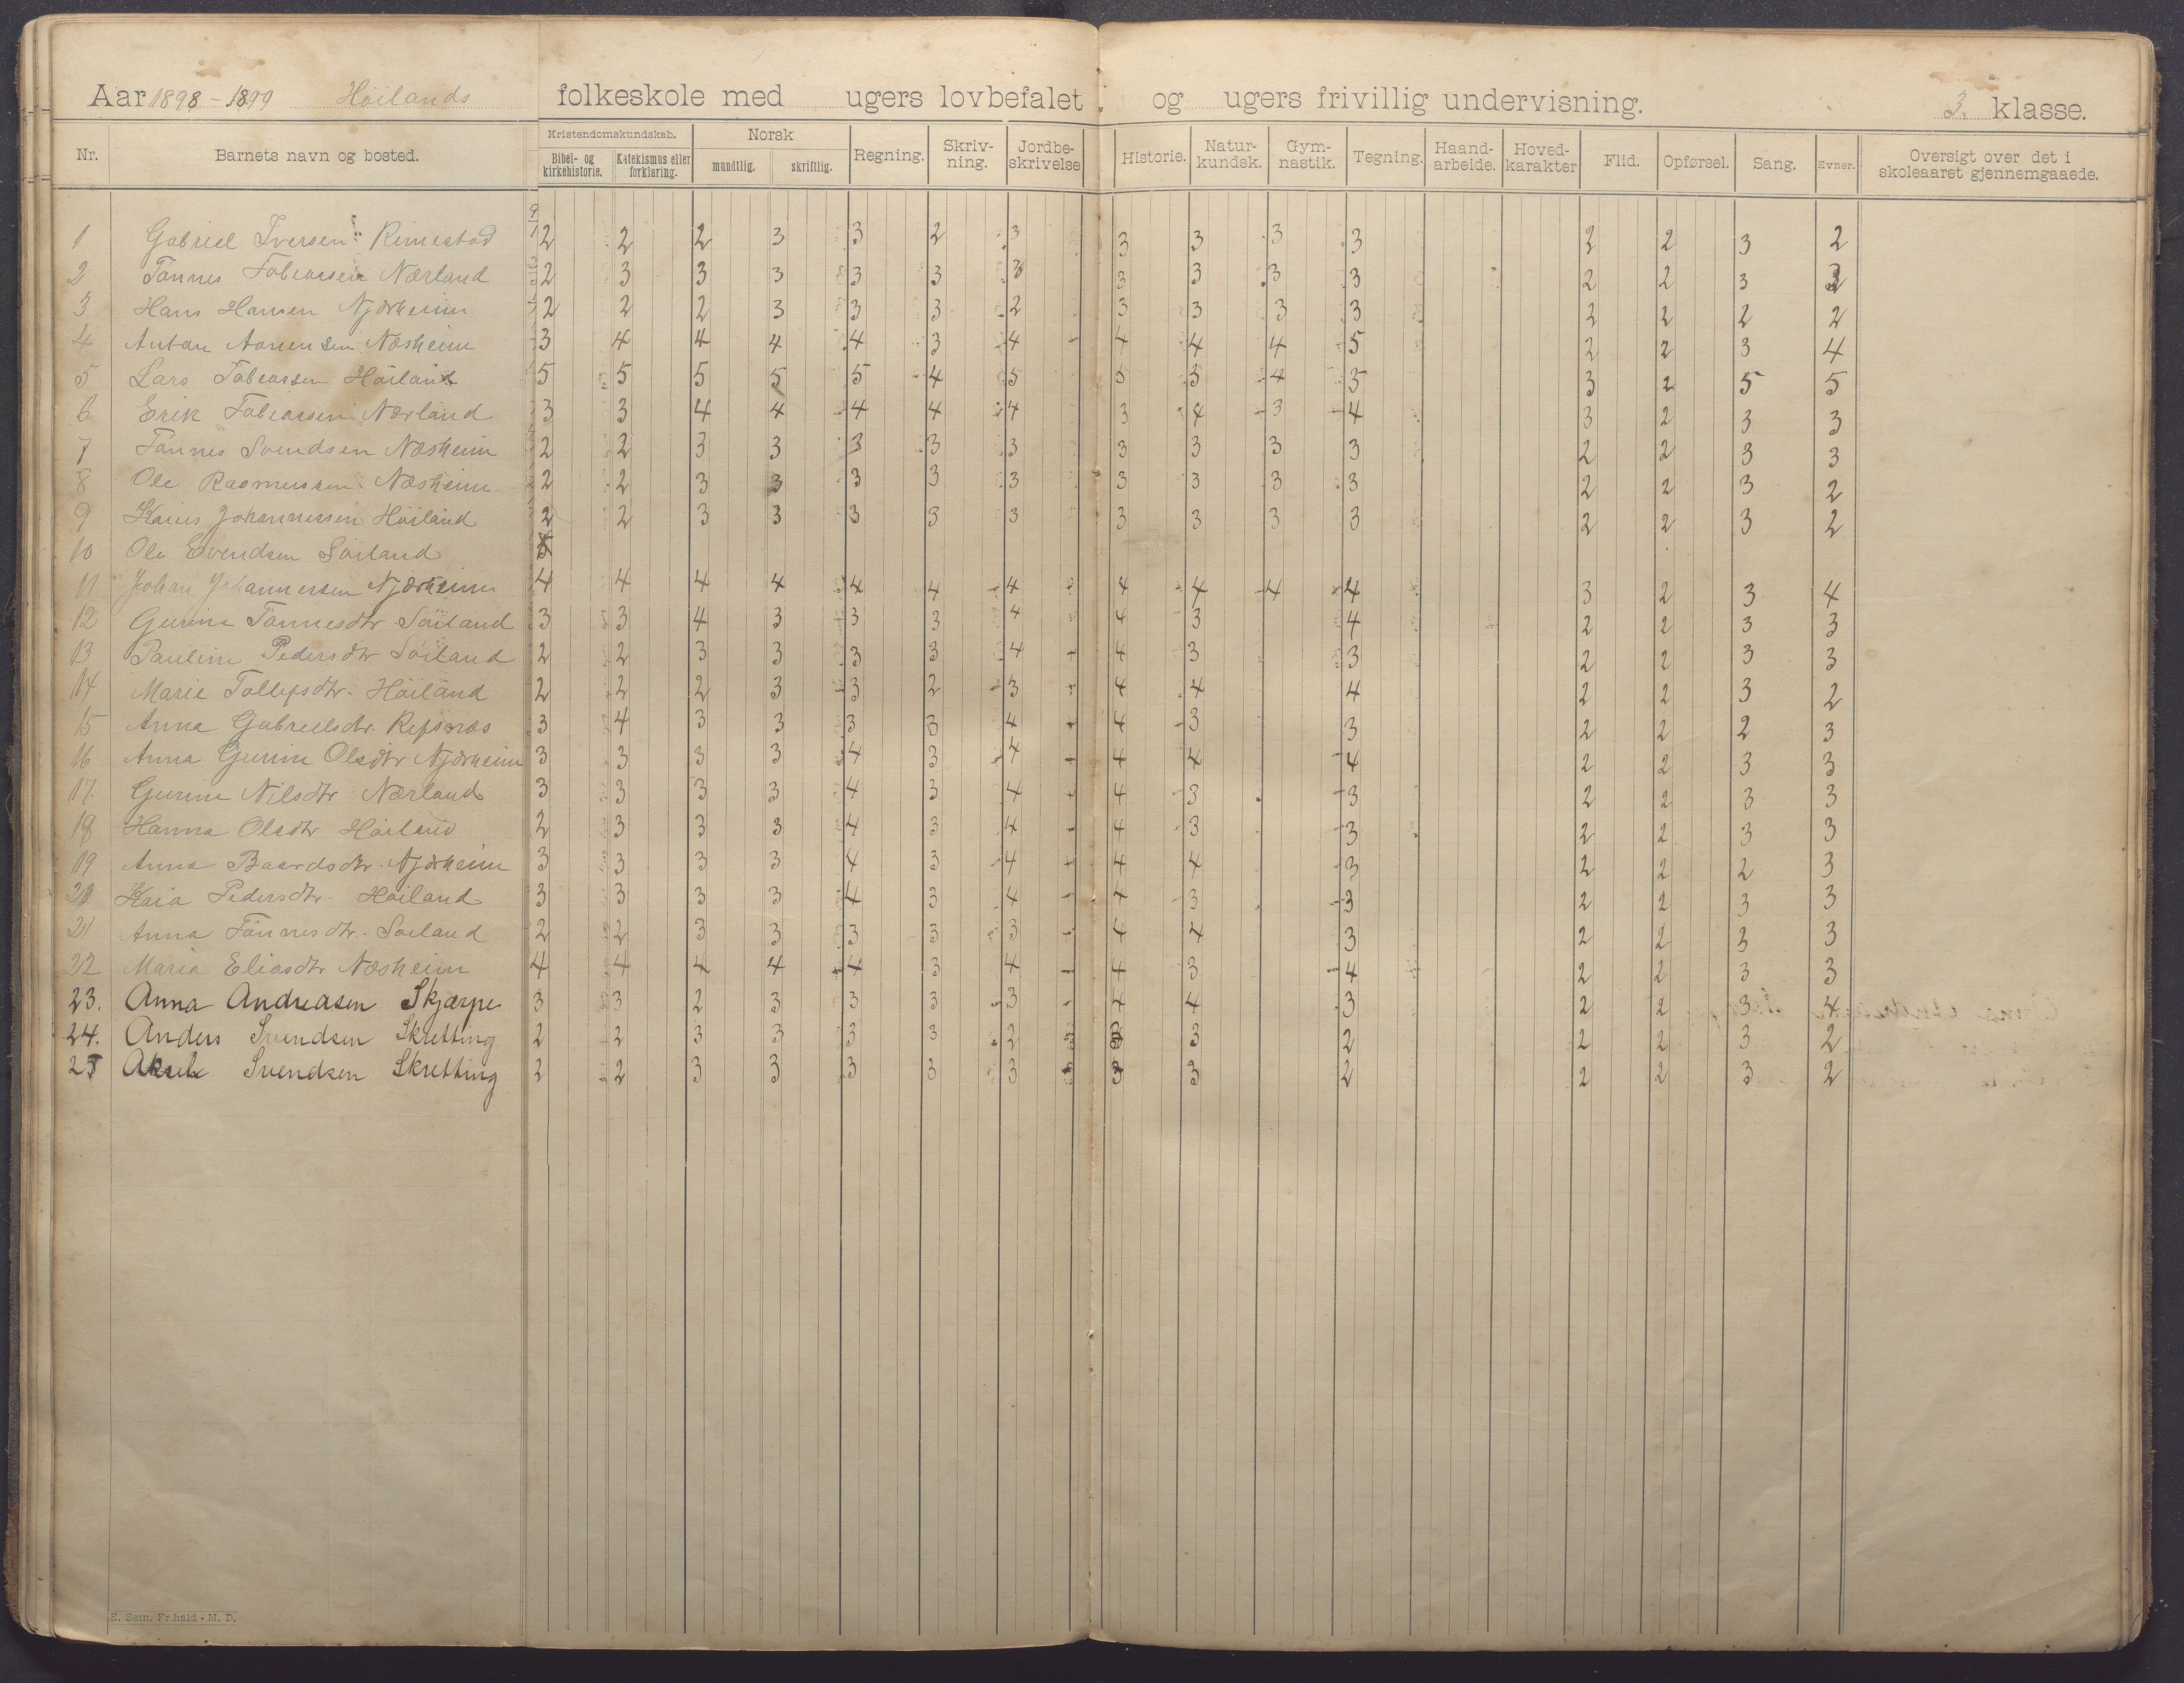 Aar 1898 - 1899 Höilands folkeskole med ugers lovbefalet og ugers frivillig undervisning. 3. klasse.
Nr. Barnets navn og bosted. Kristendomskundskab. Bibel- og kirkehistorie. Katekismus eller forklaring. Norsk mundtlig. skriftlig. Regning. Skriv-ning. Jordbe-skrivelse Historie. Natur-kundsk. Gym-nastik. Tegning. Haand-arbeide. Hoved-karakter Flid. Opførsel. Sang. Evner. Oversigt over det i skoleaaret gjennemgaaede.
1 Gabriel Iversen Rimestad 2 2 2 3 3 2 3 3 3 3 3 2 2 3 2
2 Tönnes Tobiassen Nærland 2 3 3 3 3 3 3 3 3 3 3 2 2 3
3 Hans Hansen Njærheim 2 2 2 3 3 3 2 3 3 3 3 2 2 2 2
4 Anton Aanensen Næsheim 3 4 4 4 4 3 4 4 4 4 5 2 2 3 4
5 Lars Tobiassen Höiland 5 5 5 5 5 4 5 5 3 4 5 3 2 5 5
6 Erik Tobiassen Nærland 3 3 4 4 4 4 4 3 4 3 4 3 2 3 3
7 Tönnes Svendsen Næsheim 2 2 3 3 3 3 3 3 3 3 3 2 2 3 3
8 Ole Rasmussen Næsheim 2 2 3 3 3 3 3 3 3 3 3 2 2 3 2
9 Johannessen Höiland 2 2 3 3 3 3 3 3 3 3 3 2 2 3 2
10 Ole Evendsen Söiland
11 Johan Johannessen Njærheim 4 4 4 4 4 4 4 4 4 4 4 3 2 3 4
12 Gurine Tönnesdtr. Söiland 3 3 4 3 3 3 4 4 3 4 2 2 3 3
13 Pauline Pedersdtr Söiland 2 2 3 3 3 3 4 4 3 3 2 2 3 3
14 Marie Tollefsdtr. Höiland 2 2 2 3 3 2 3 4 4 4 2 2 3 2
15 Anna Gabrielsdtr. Refsnæs 3 4 3 3 3 3 4 4 3 3 2 2 2 3
16 Anna Gurine Olsdtr Njærheim 3 3 3 3 4 3 4 4 4 4 2 2 3 3
17. Gurine Nilsdtr Nærland 3 3 3 3 4 3 4 4 3 3 2 2 3 3
18 Hanna Olsdtr Höiland 2 3 3 3 4 3 4 4 3 3 2 2 3 3
19 Anna Baardsdtr. Njærheim 3 3 3 3 4 3 4 4 4 3 2 2 2 3
20 Kaia Pedersdtr. Höiland 3 3 3 3 4 3 4 4 3 3 2 2 3 3
21 Anna Tönnesdtr. Söiland 2 2 3 3 3 3 3 4 4 3 2 2 3 3
22 Maria Eliasdtr Næsheim 4 4 4 4 4 3 4 4 3 4 2 2 3 3
23. Anna Andreasen Skjærpe 3 3 2 3 3 3 3 4 4 3 2 2 3 4
24. Anders Svendsen Skretting 2 2 3 3 3 3 2 3 2 2 2 3 2
25 Aksel Svendsen Skretting 2 2 3 3 3 3 3 3 3 2 2 2 3 2
E. Sem. Fr.hald - M. D.